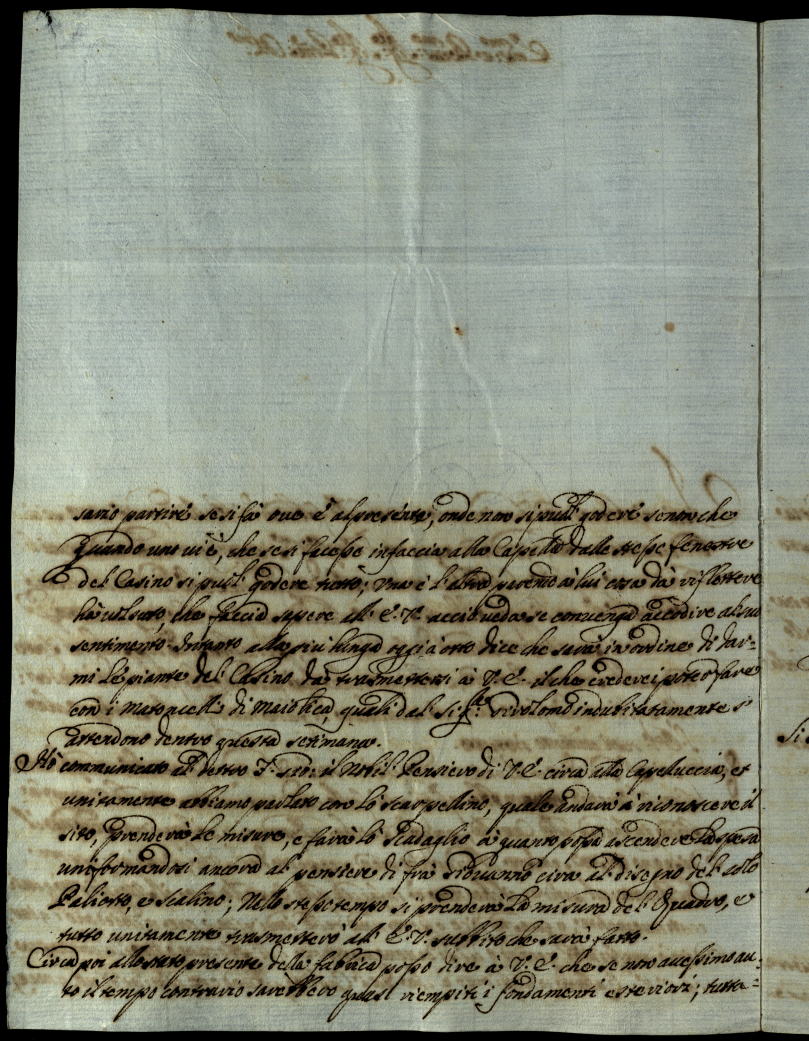 sario partire se si fà ove è al presente, onde non si può godere senon che
quando uno vi è, che se si facesse in faccia alla Capella dalle stesse fenestre
del Casino si può godere tutto; ma è l'altro parendo à lui cosa dà riflettere
hà voluto, che faccia sapere all' E. V. acciò veda se convenga aderire al suo
sentimento. Intanto alla più lunga oggi à otto dice che sarà in ordine di dar-
mi le piante del Casino da trasmettersi à V. E. il che crederei poter fare
con i matoncelli di Maiolica, quali dal Sig.re indubitatamente s'
attendono dentro questa settimana.
Hò communicato al detto il Nobil Pensiero di V. E. circa alla Capelluccia, et
unitamente abbiamo parlato con lo scarpellino, quale andarà à riconoscere il
sito, prenderà le misure, e farà lo scadaglio à quanto possa ascendere la spesa
uniformandosi ancora al pensiere di frà Giovanni circa al disegno del solo
Paliotto, e scalino; Nello stesso tempo si prenderà la misura del Quadro, e
tutto unitamente trasmetterò all' E. V. subbito che sarà fatto.
Circa poi allo stato presente della fabrica posso dire à V. E. che se non avessimo au-
to il tempo contrario sarebbero quasi riempiti i fondamenti esteriori; tutta-